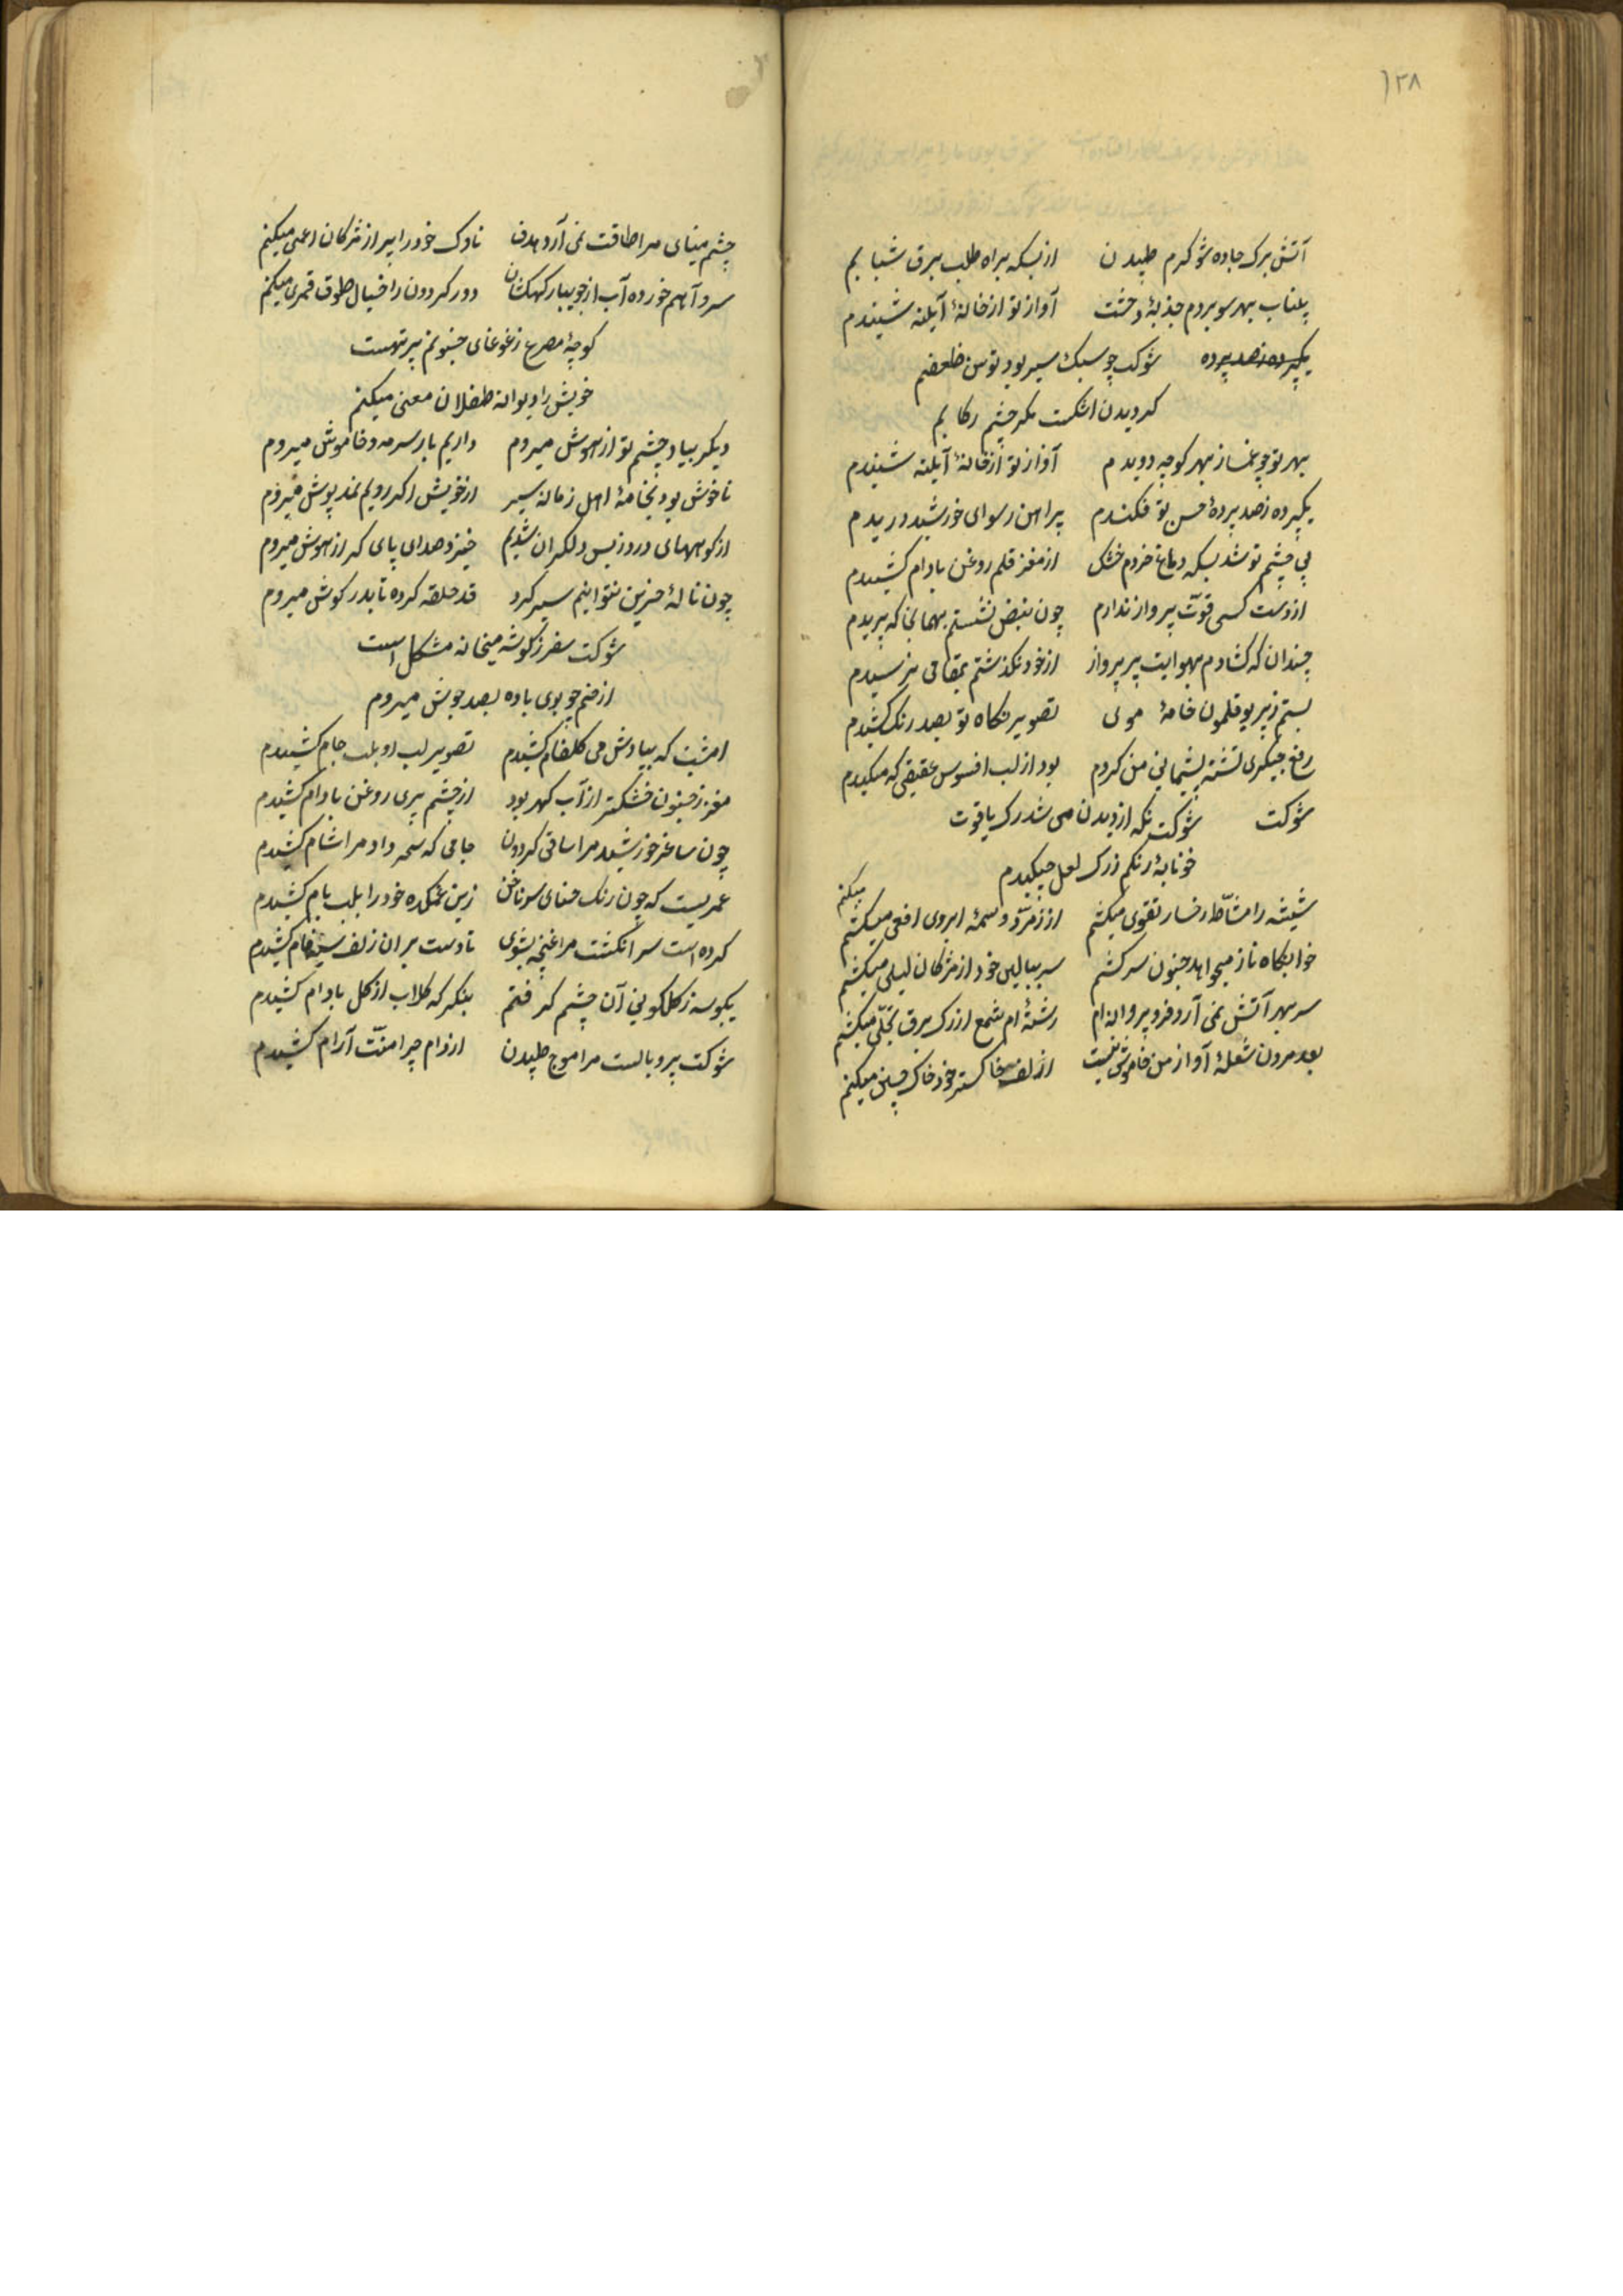 ۱۳۸
آتش برک جاده شو کرم طپیدن از بسکه براه طلب برق شتابم
بیتاب بهر سو بردم جذبهٔ وحشت آواز تو از خانهٔ آیلنه شنیدم
یکپرده زصد پرده شوکت چو سبک سیر بود توسن
کردیدن اشکست مکر چشم رکابم
بهر تو چو غماز بهر کوچه دویدم آواز تو از خانهٔ آیلنه شنیدم
یکپرده زصد پردهٔ حسن تو فکندم پیراهن رسوای خورشید دریدم
بی چشم تو شد بسکه دماغ خردم خشک از مغز قلم روغن بادام کشیدم
از دست کسی قوّت پرواز ندارم چون نبض نشستم بهمانجا که پریدم
چندان که کشادم بهوایت پر پرواز از خود نکذشتم بمقامی نرسیدم
بستم زپر بوقلمون خامهٔ موی تصویر نکاه تو بصد رنک کشیدم
رفع جکری تشنه پشیمانی من کردم بود از لب افسوس عقیقی که مکیدم
شوکت شوکت نکه از دیدن می شد رک یاقوت
خونابهٔ رنکم زرک لعل چکیدم
میکنم
شیشه را مشّاطهٔ رخسار تقوی میکنم از زمرّد وسمهٔ ابروی افعی میکشم
خوابکاه ناز میخواهد جنون سرکشم سر ببالین خود از مژکان لیلی میکشم
سر بهر آتش نمی آرد فرو پروانه ام رشتهٔ ام شمع از رک برق تجلّی میکشم
بعد مردن شعلهٔ آواز من خاموش نیست از لف خاکستر خود خاک چینی میکنم
چشم مینای مرا طاقت نمی آرد هدف ناوک خود را پر از مژکان اعمی میکنم
سرو آهم خورده آب از جویبار کهکشان دور کردون را خیال طوق قمری میکنم
کوچهٔ مصرع زغوغای جنونم پر تهست
خویش را دیوانه طفلان معنی میکنم
دیکر بیاد چشم تو از هوش میروم داریم بار سرمه و خاموش میروم
ناخوش بود بخامهٔ اهل زمانه سیر از خویش اکر رویم نمد پوش میروم
از کوههای درد زبس دلکران شدیم خیزد صدای پای کر از هوش میروم
چون نالهٔ حزین نتوانیم سیر کرد قد حلقه کرده تا بدر کوش میروم
شوکت سفر زکوشه میخانه مشکل است
از خم چو بوی باده بصد جوش میروم
امشب که بیادش می کلفام کشیدم تصویر لب او بلب جام کشیدم
مغزم زجنون خشکتر از آب کهر بود از چشم پری روغن بادام کشیدم
چون ساغر خورشید مرا ساقی کردون جامی که سحر داد مرا شام کشیدم
عمریست که چون رنک حنای سر ناخن زین غمکده خود را بلب بام کشیدم
کرده است سر انکشت مرا غنچه شبوی تا دست بر ان زلف سیه فام کشیدم
یکبوسه زکلکونی آن چشم کرفتم بنکر که کلاب از کل بادام کشیدم
شوکت پر و بالست مرا موج طپیدن از دام چرا منّت آرام کشیدم